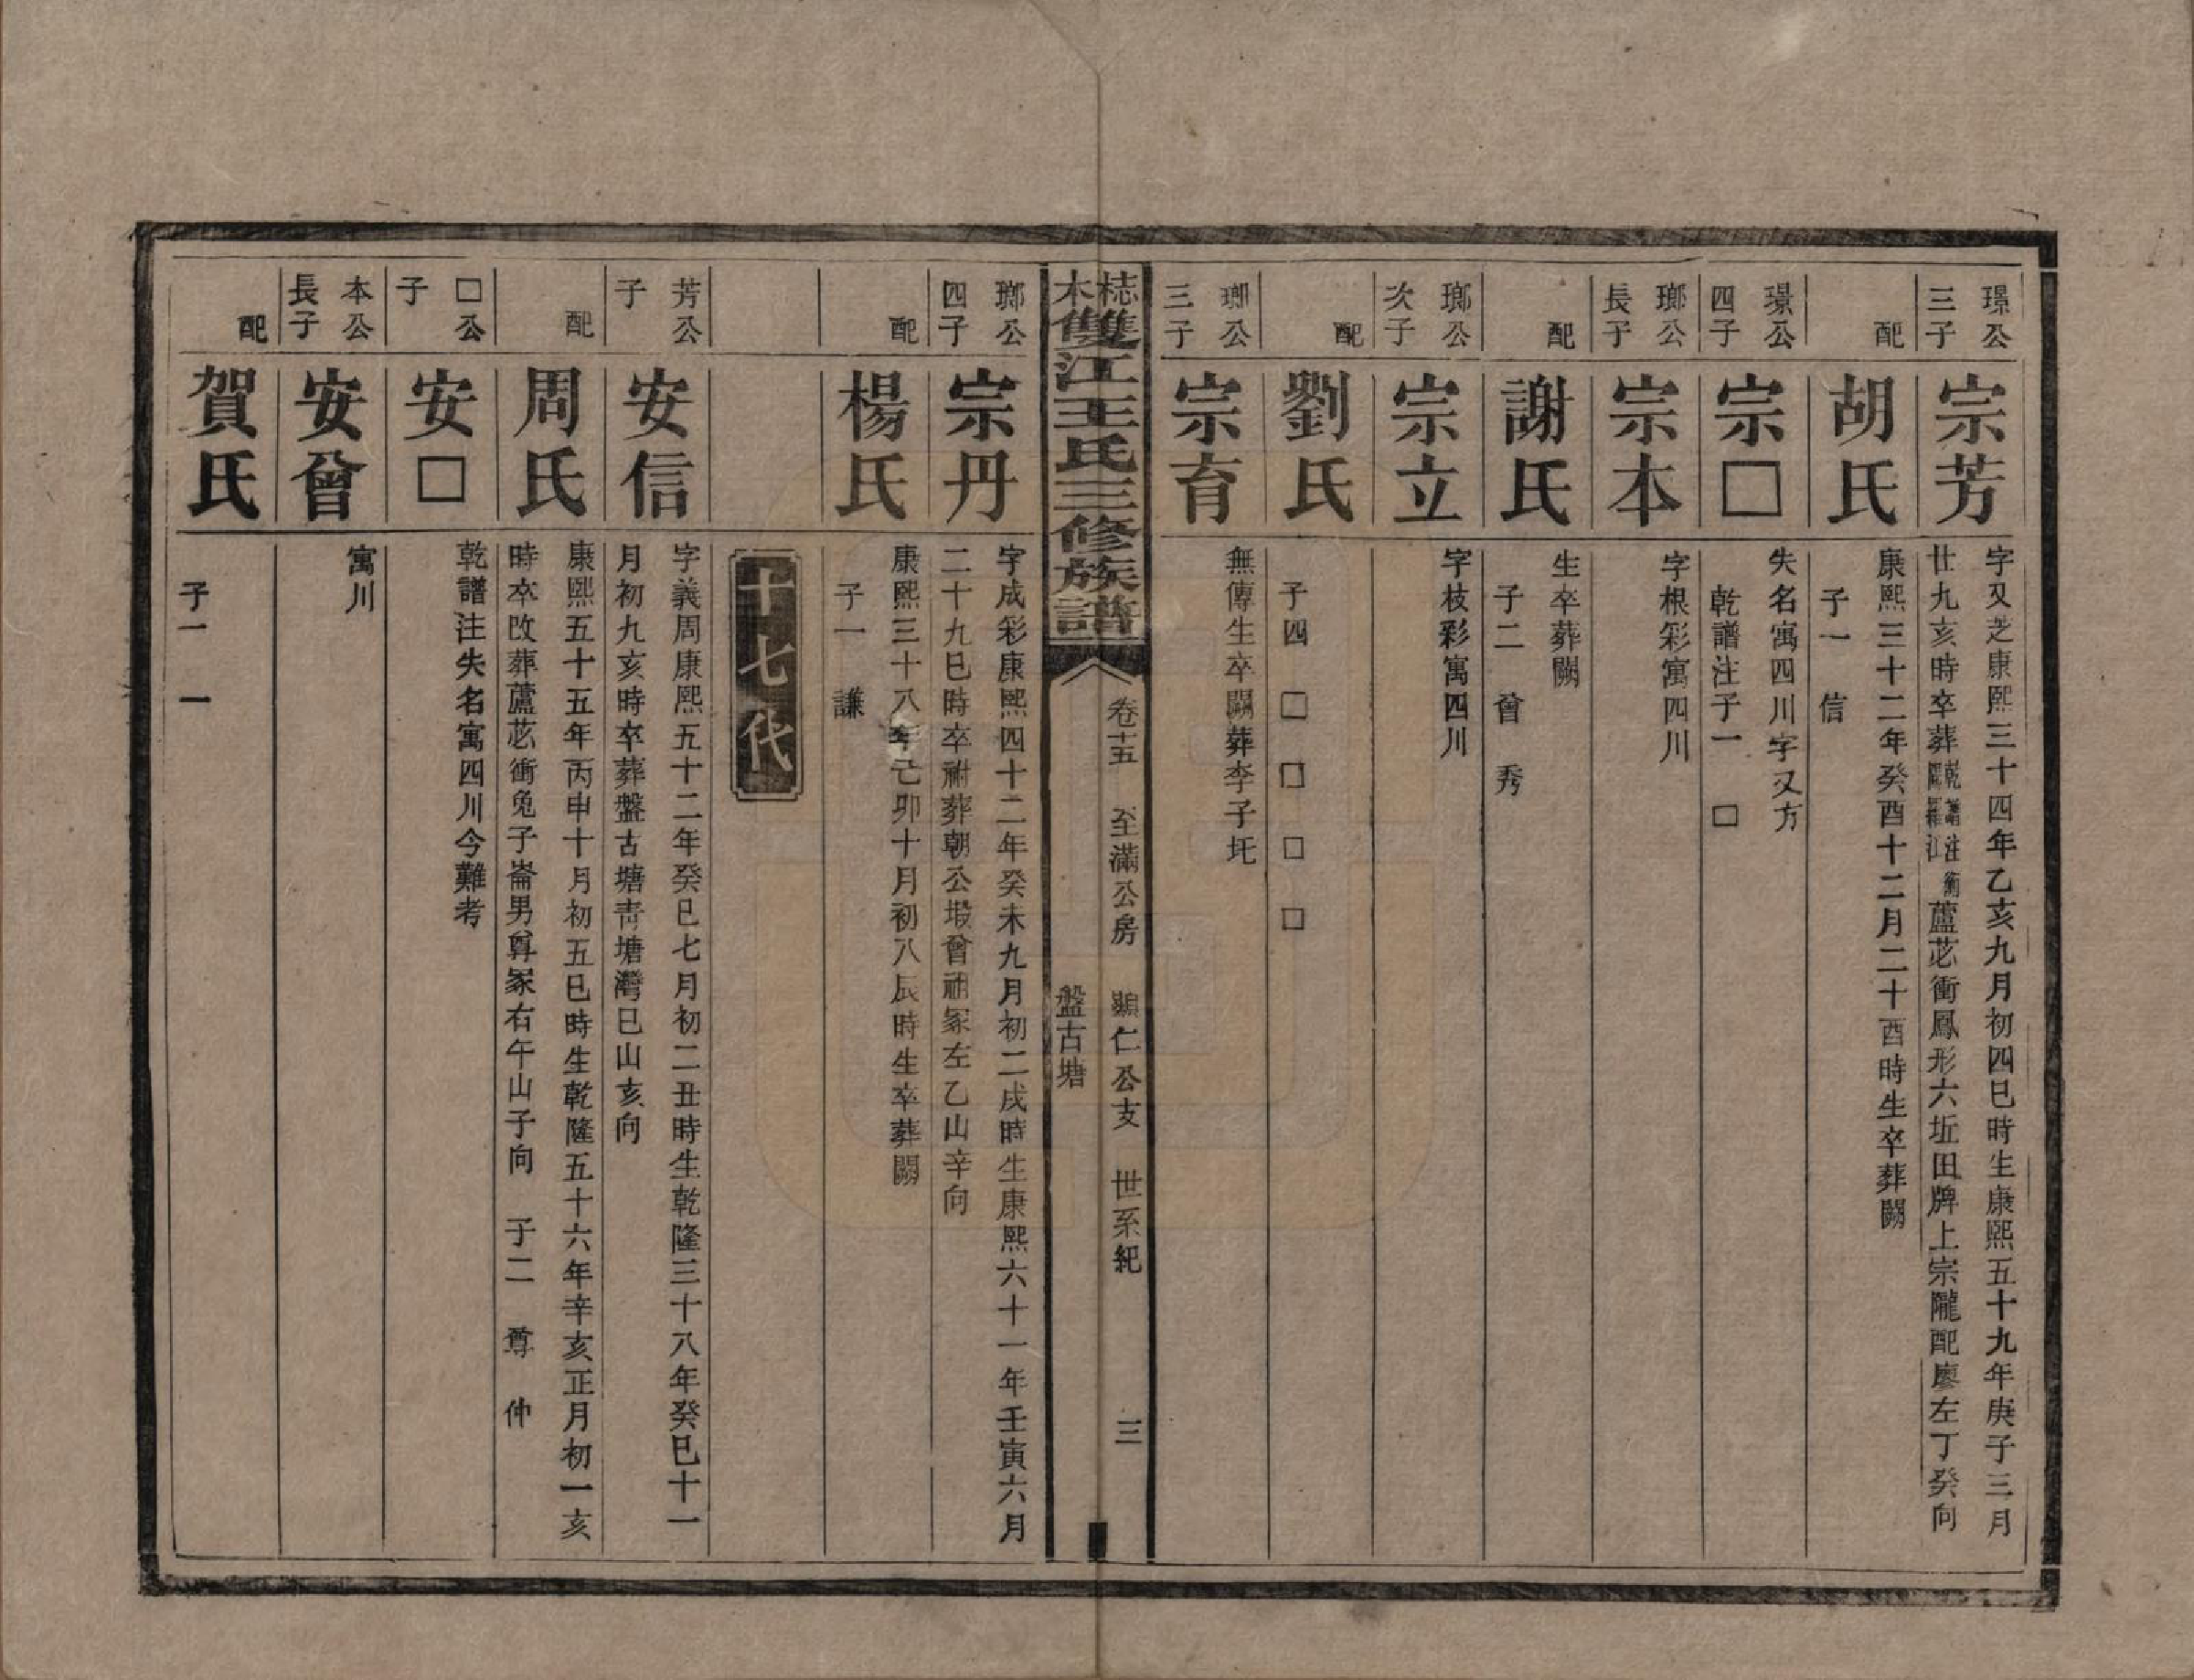 璟公
三子
宗芳
字又芝康熙三十四年乙亥九月初四巳時生康熙五十九年庚子三月
廿九亥時卒葬乾譜注衡陽羅江蘆苾衝鳳形六坵田牌上宗隴配廖左丁癸向
配
胡氏
康熙三十二年癸酉十二月二十酉時生卒葬闕
子一　信
璟公
四子
宗□
失名寓四川字又方
乾譜注子一　□
瑯公
長子
宗本
字根彩寓四川
配
謝氏
生卒葬闕
子二　曾　秀
瑯公
次子
宗立
字枝彩寓四川
配
劉氏
子四　□　□　□　□
瑯公
三子
宗育
無傳生卒闕葬李子圫
梽木雙江王氏三修族譜
卷十五　至滿公房　顯仁公支　世系紀　三
盤古塘
瑯公
四子
宗丹
字成彩康熙四十二年癸未九月初二戌時生康熙六十一年壬寅六月
二十九巳時卒祔葬朝公塅曾祖冢左乙山辛向
配
楊氏
康熙三十八年己卯十月初八辰時生卒葬闕
子一　謙
十七代
芳公
子
安信
字義周康熙五十二年癸巳七月初二丑時生乾隆三十八年癸巳十一
月初九亥時卒葬盤古塘青塘灣巳山亥向
配
周氏
康熙五十五年丙申十月初五巳時生乾隆五十六年辛亥正月初一亥
時卒改葬蘆苾衝兔子崙男尊冢右午山子向　子二　尊　仲
□公
子
安□
乾譜注失名寓四川今難考
本公
長子
安曾
寓川
配
賀氏
子一　一